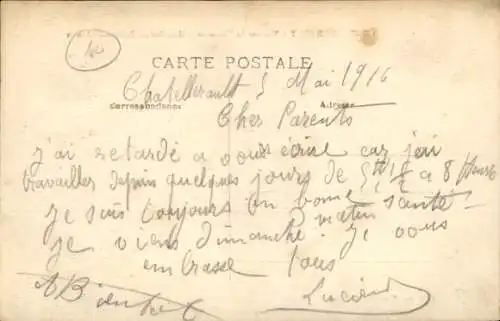 CARTE POSTALE
Chatellerault 5 Mai 1916
Correspondance Adresse
Cher Parents
j'ai retardé a vous écrire car jai
travailler depuis quelques jours de 5H 1/2 a 8 Heures
je suis toujours en bonne santé
je viens dimanche matin. je vous
embrasse tous
A Bientot Lucien